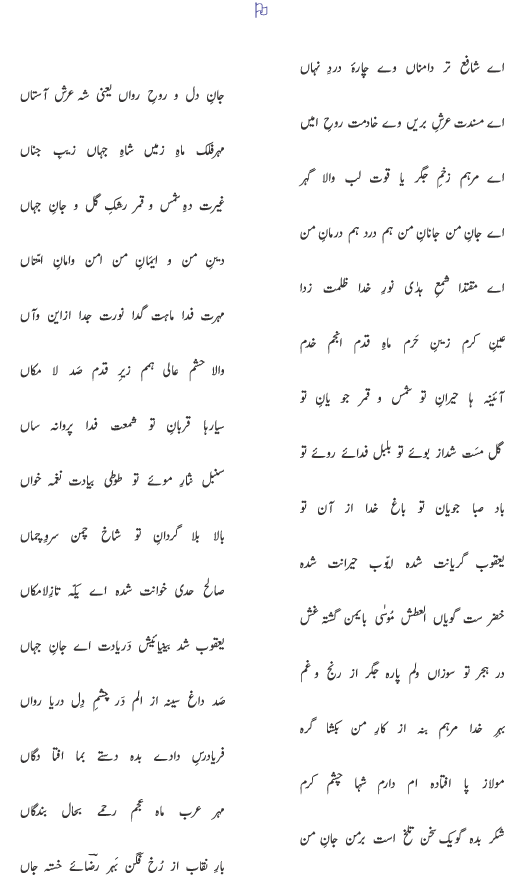 اے شافعِ تر دامناں وے چارۂ دردِ نہاں
جانِ دل و روحِ رواں یعنی شہِ عرش آستاں
اے مسندت عرشِ بریں وے خادمت روحِ امیں
مہرِ فلک ماہِ زمیں شاہِ جہاں زیبِ جناں
اے مرہمِ زخمِ جگر یا قوت لب والا گہر
غیرت دہِ شمس و قمر رشکِ گل و جانِ جہاں
اے جانِ من جانانِ من ہم درد ہم درمانِ من
دینِ من و ایمانِ من امن وامانِ امتاں
اے مقتدا شمعِ ہدٰی نورِ خدا ظلمت زدا
مہرت فدا ماہت گدا نورت جدا ازاین وآں
عینِ کرم زینِ حَرم ماہِ قدم انجم خدم
والا حشم عالی ہمم زیرِ قدم صَد لا مکاں
آئینہ ہا حیرانِ تو شمس و قمر جو یانِ تو
سیارہا قربانِ تو شمعت فدا پروانہ ساں
گل مسَت شداز بوئے تو بلبل فدائے روئے تو
سنبل نثارِ موئے تو طوطی بیادت نغمہ خواں
باد صبا جویان تو باغِ خدا از آنِ تو
بالا بلا گردانِ تو شاخِ چمن سروِچماں
یعقوب گریانت شدہ ایوّب حیرانت شدہ
صالح حدی خوانت شدہ اے یکّہ تازِلامکاں
خضر ست گویاں العطش مُوسٰی بایمن گشتہ غش
یعقوب شد بینائیش دَریادت اے جانِ جہاں
در ہجر تو سوزاں ولم پارہ جگر از رنج و غم
صَد داغ سینہ از الم دَر چشمِ دِل دریا رواں
بہرِ خدا مرہم بنہ از کارِ من بکشا گرہ
فریادرسِ دادے بدہ دستے بما افتا دگاں
مولاز پا افتادہ ام دارم شہا چشمِ کرم
مہر عرب ماہِ عجم رحمے بحالِ بندگاں
شکر بدہ گویک سخن تلخ است برمن جانِ من
بارِ نقاب از رُخ فگن بَہر رضؔائے خستہ جاں